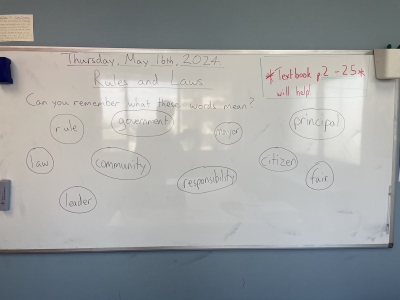 Thursday, May 16th, 2024
Rules and Laws
*Textbook p.2-25*
will help
Can you remember what these words mean?
rule
government
mayor
principal
law
community
responsibility
citizen
fair
leader